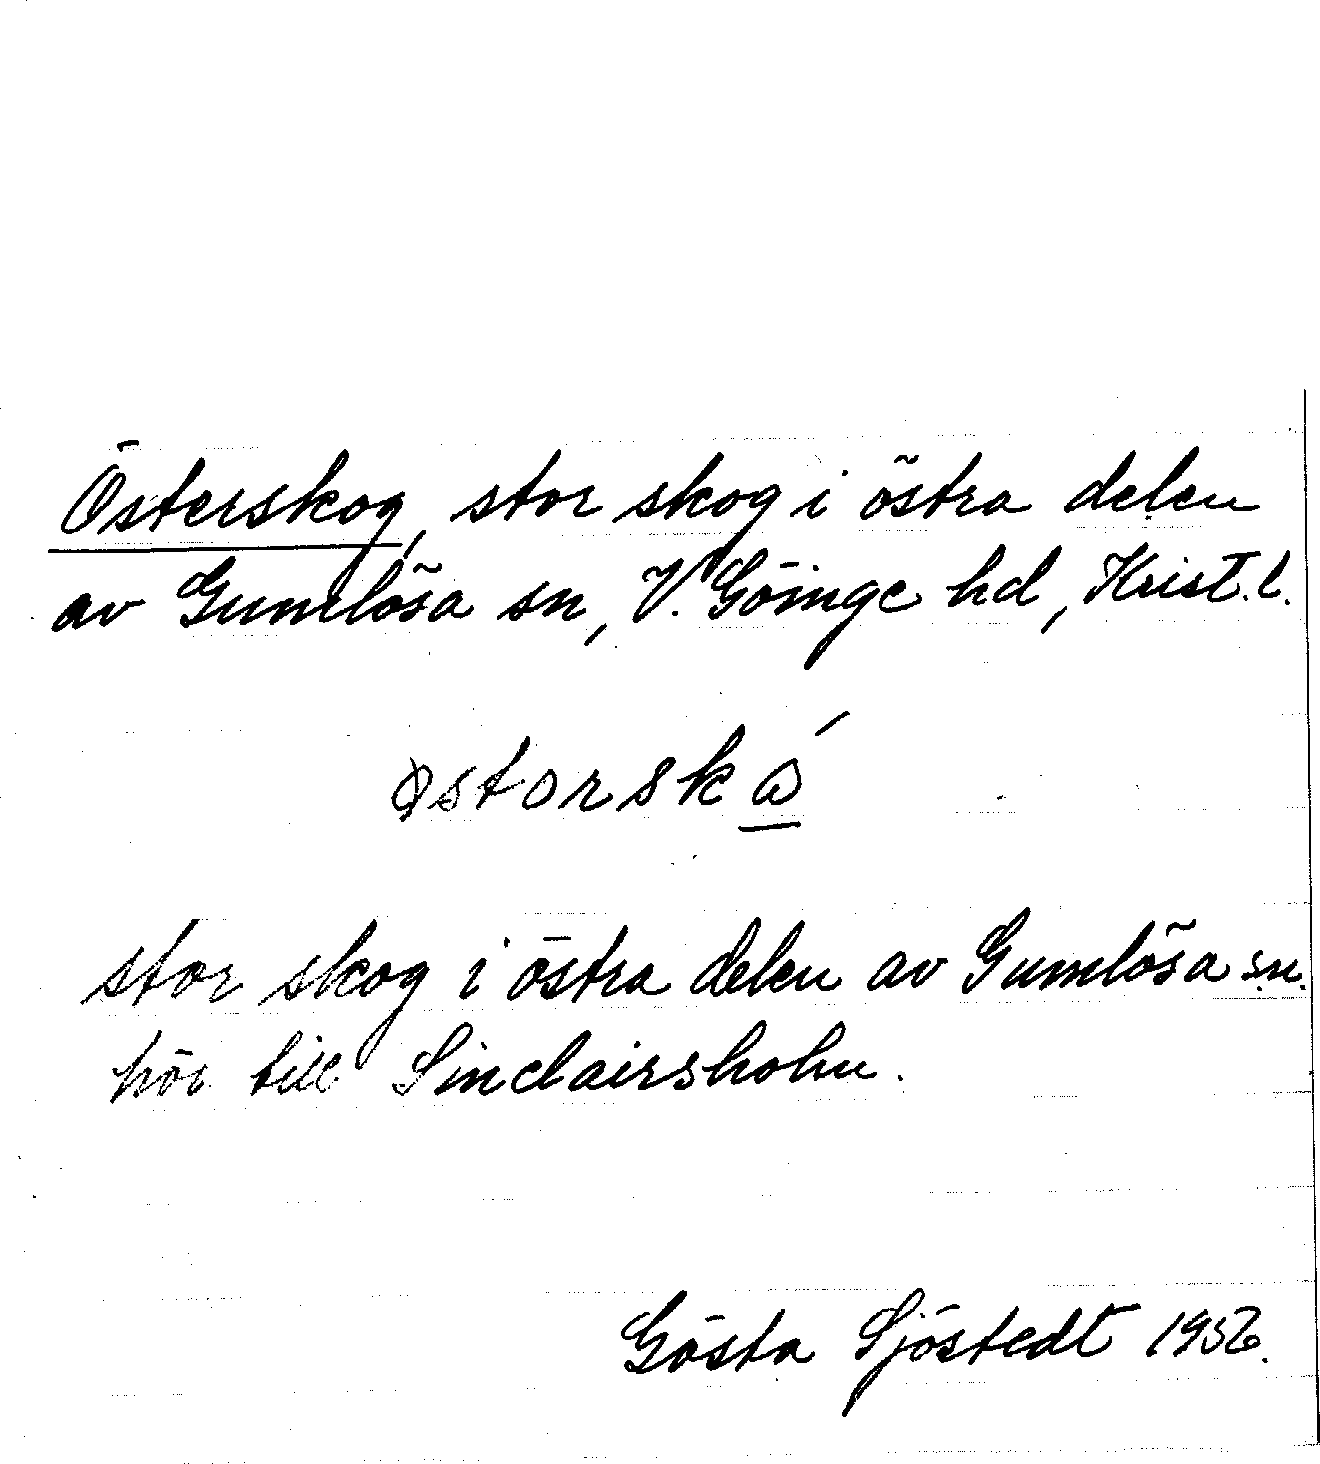 Österskog, stor skog i östra delen
av Gumlösa sn, V. Göinge hd, Krist. l.
østorskǻ
stor skog i östra delen av Gumlösa sn.
hör till Sinclairsholm.
Gösta Sjöstedt 1956.